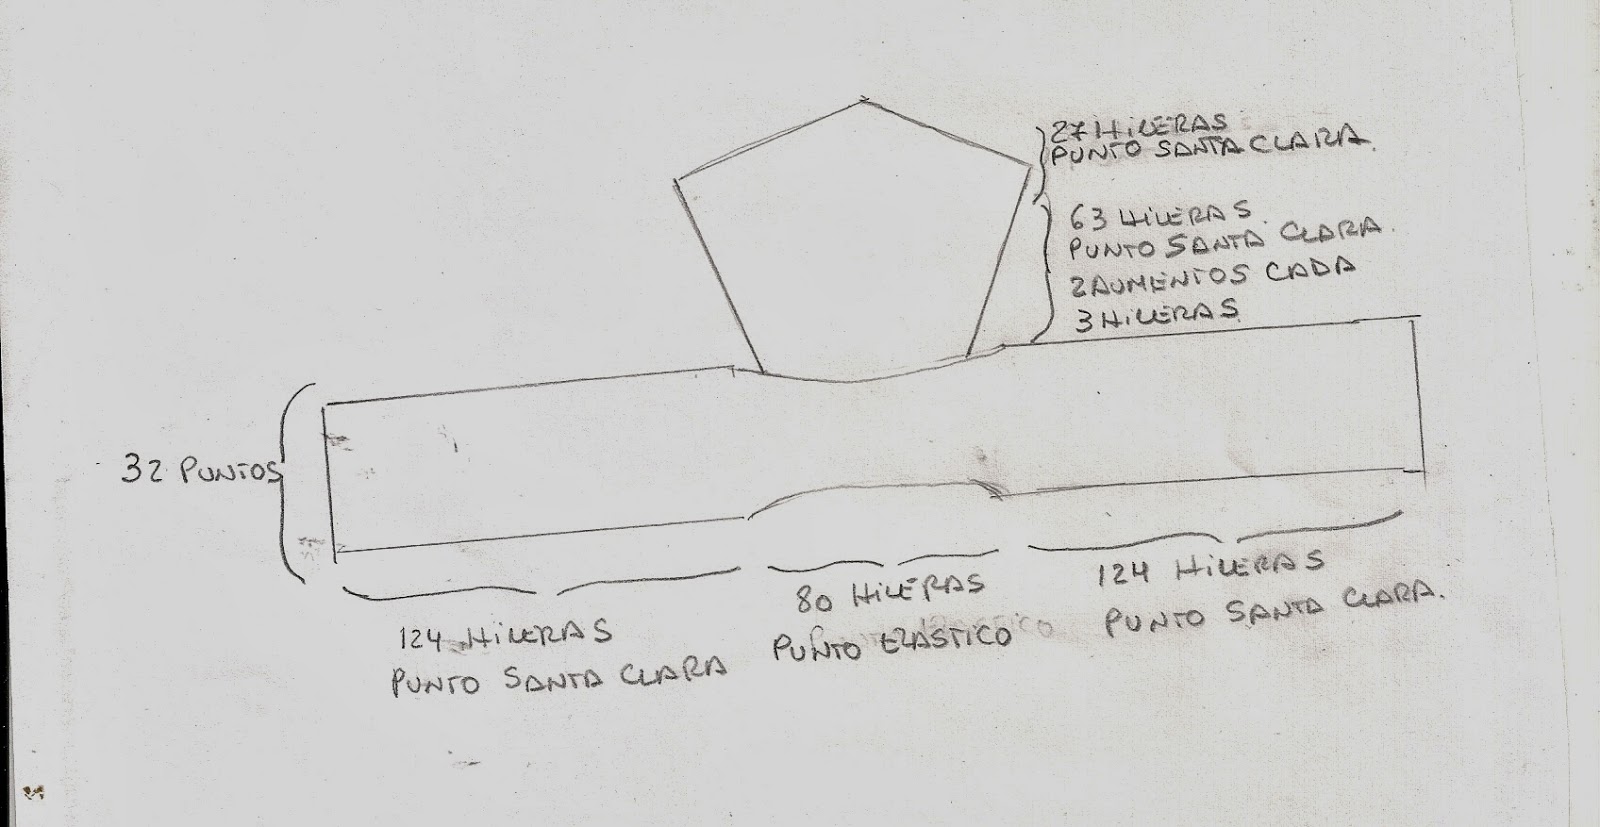 27 HILERAS
PUNTO SANTA CLARA.
63 HILERAS.
PUNTO SANTA CLARA.
2 AUMENTOS CADA
3 HILERAS
32 PUNTOS
124 HILERAS
PUNTO SANTA CLARA
80 HILERAS
PUNTO ELASTICO
124 HILERAS
PUNTO SANTA CLARA.